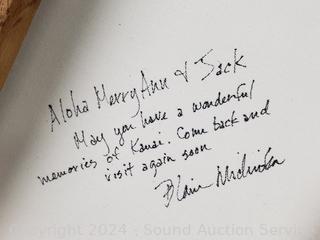 Aloha MerryAnn & Jack
May you have a wonderful
memories of Kauai. Come back and
visit again soon
Blair
Copyright 2024 - Sound Auction Service